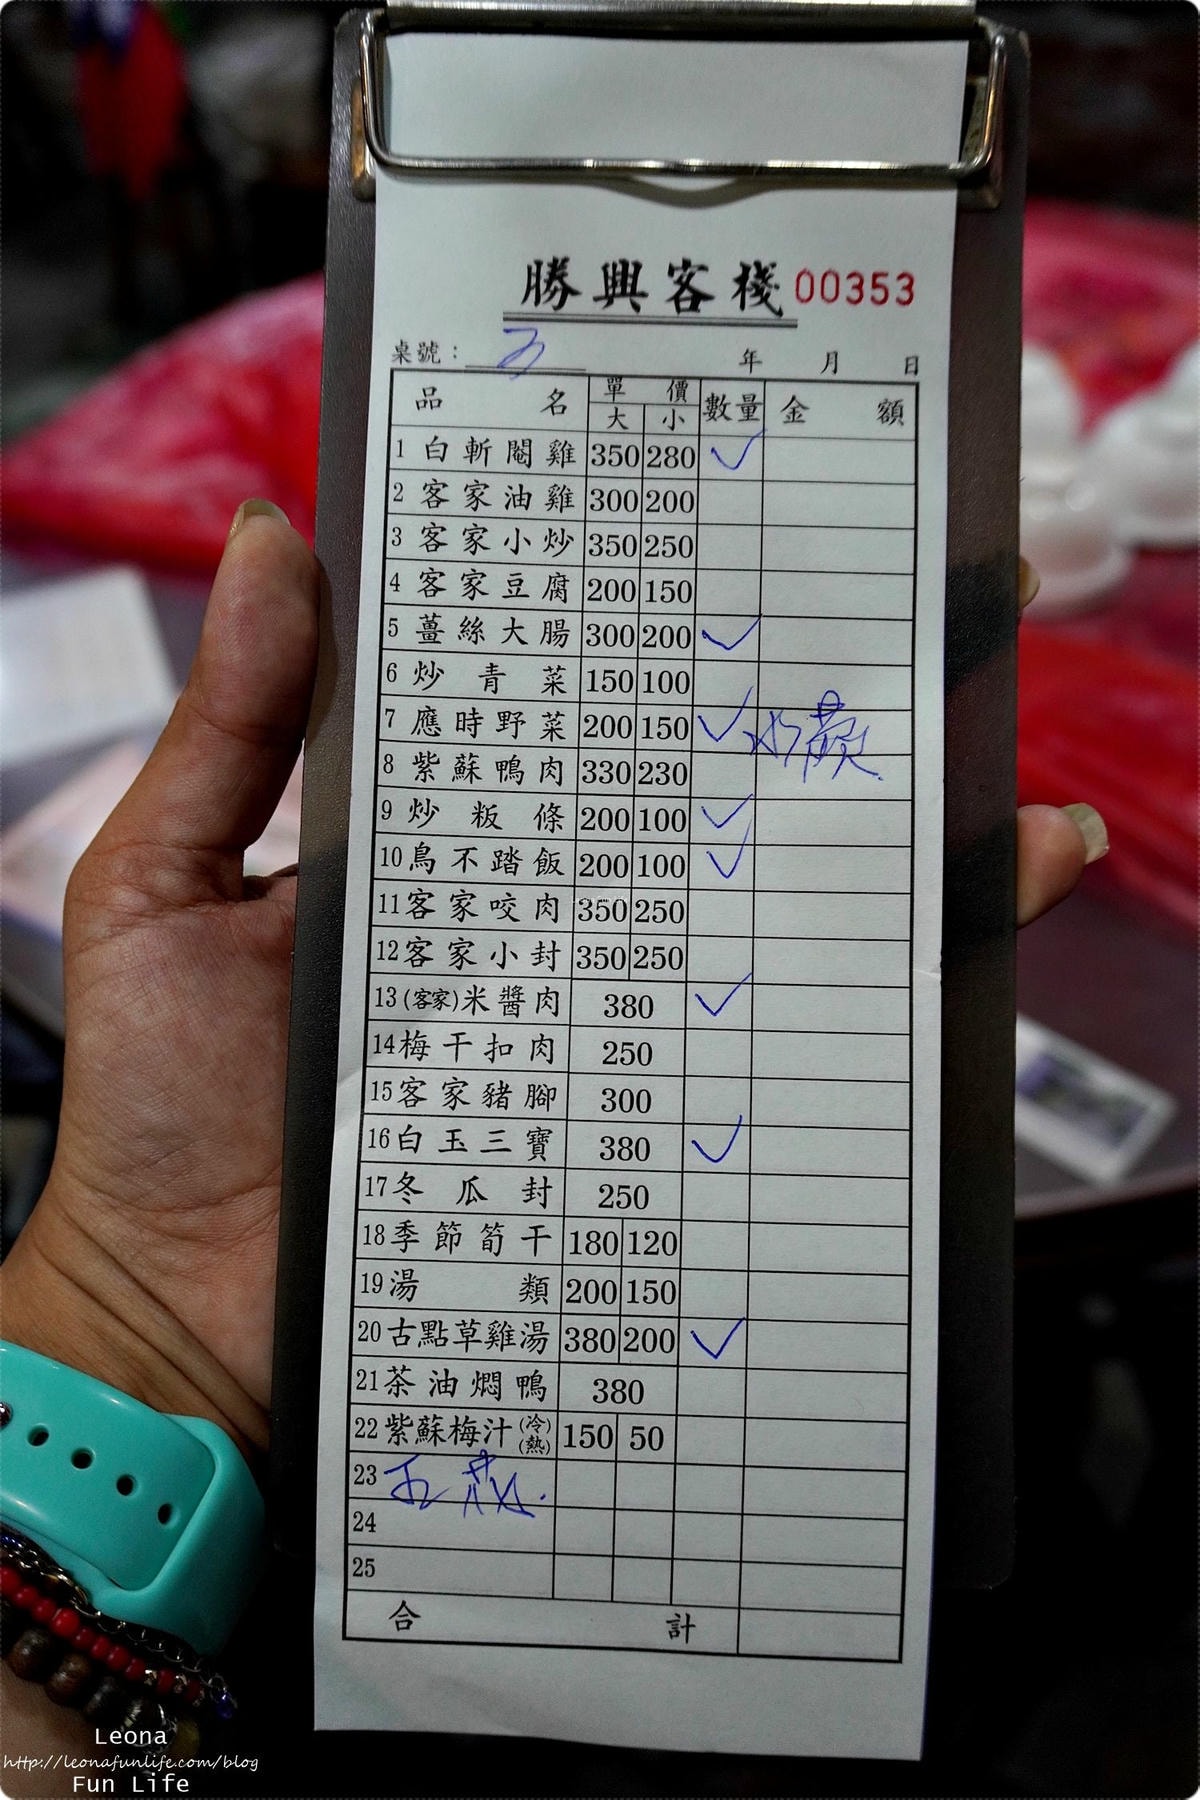 勝興客棧 00353
桌號： 年 月 日
品名 單價 數量 金額
大 小
1 白斬閹雞 350 280 ✓
2 客家油雞 300 200
3 客家小炒 350 250
4 客家豆腐 200 150
5 薑絲大腸 300 200 ✓
6 炒青菜 150 100
7 應時野菜 200 150 ✓ 水蓮
8 紫蘇鴨肉 330 230
9 炒粄條 200 100 ✓
10 鳥不踏飯 200 100 ✓
11 客家咬肉 350 250
12 客家小封 350 250
13 (客家)米醬肉 380 ✓
14 梅干扣肉 250
15 客家豬腳 300
16 白玉三寶 380 ✓
17 冬瓜封 250
18 季節筍干 180 120
19 湯類 200 150
20 古點草雞湯 380 200 ✓
21 茶油燜鴨 380
22 紫蘇梅汁(冷)(熱) 150 50
23
24
25
合計
Leona
http://leonafunlife.com/blog
Fun Life